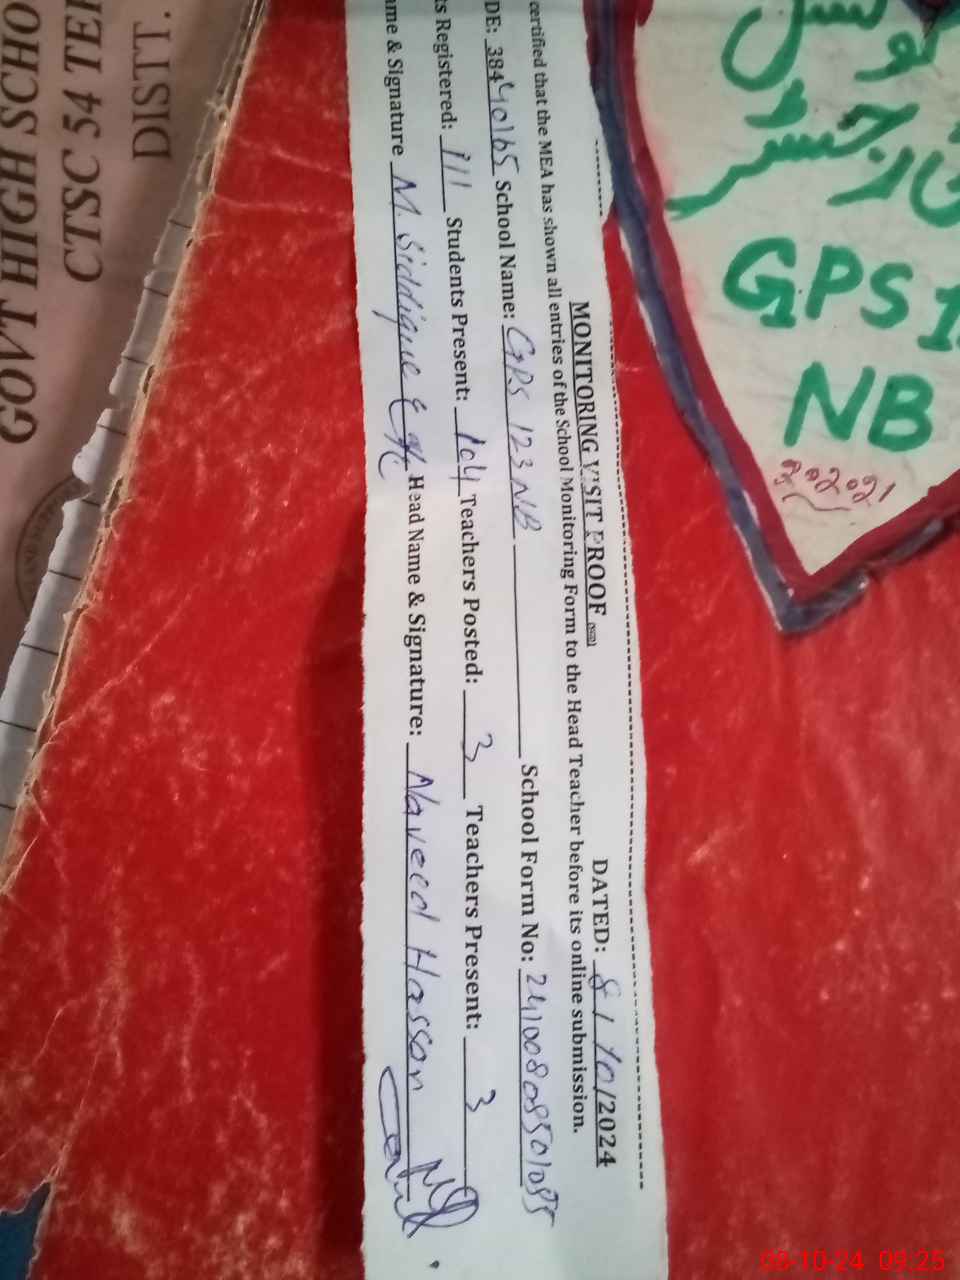 MONITORING VISIT PROOF DATED: 8/10/2024
certified that the MEA has shown all entries of the School Monitoring Form to the Head Teacher before its online submission.
DE: 38440165 School Name: GPS 123 NB School Form No:
ts Registered: 111 Students Present: 104 Teachers Posted: 3 Teachers Present: 3
me & Signature M. Siddique Head Name & Signature: Naveed Hassan
GPS 1
NB
DISTT.
CTSC 54 TEL
GOVT HIGH SCHO
08-10-24 09:25